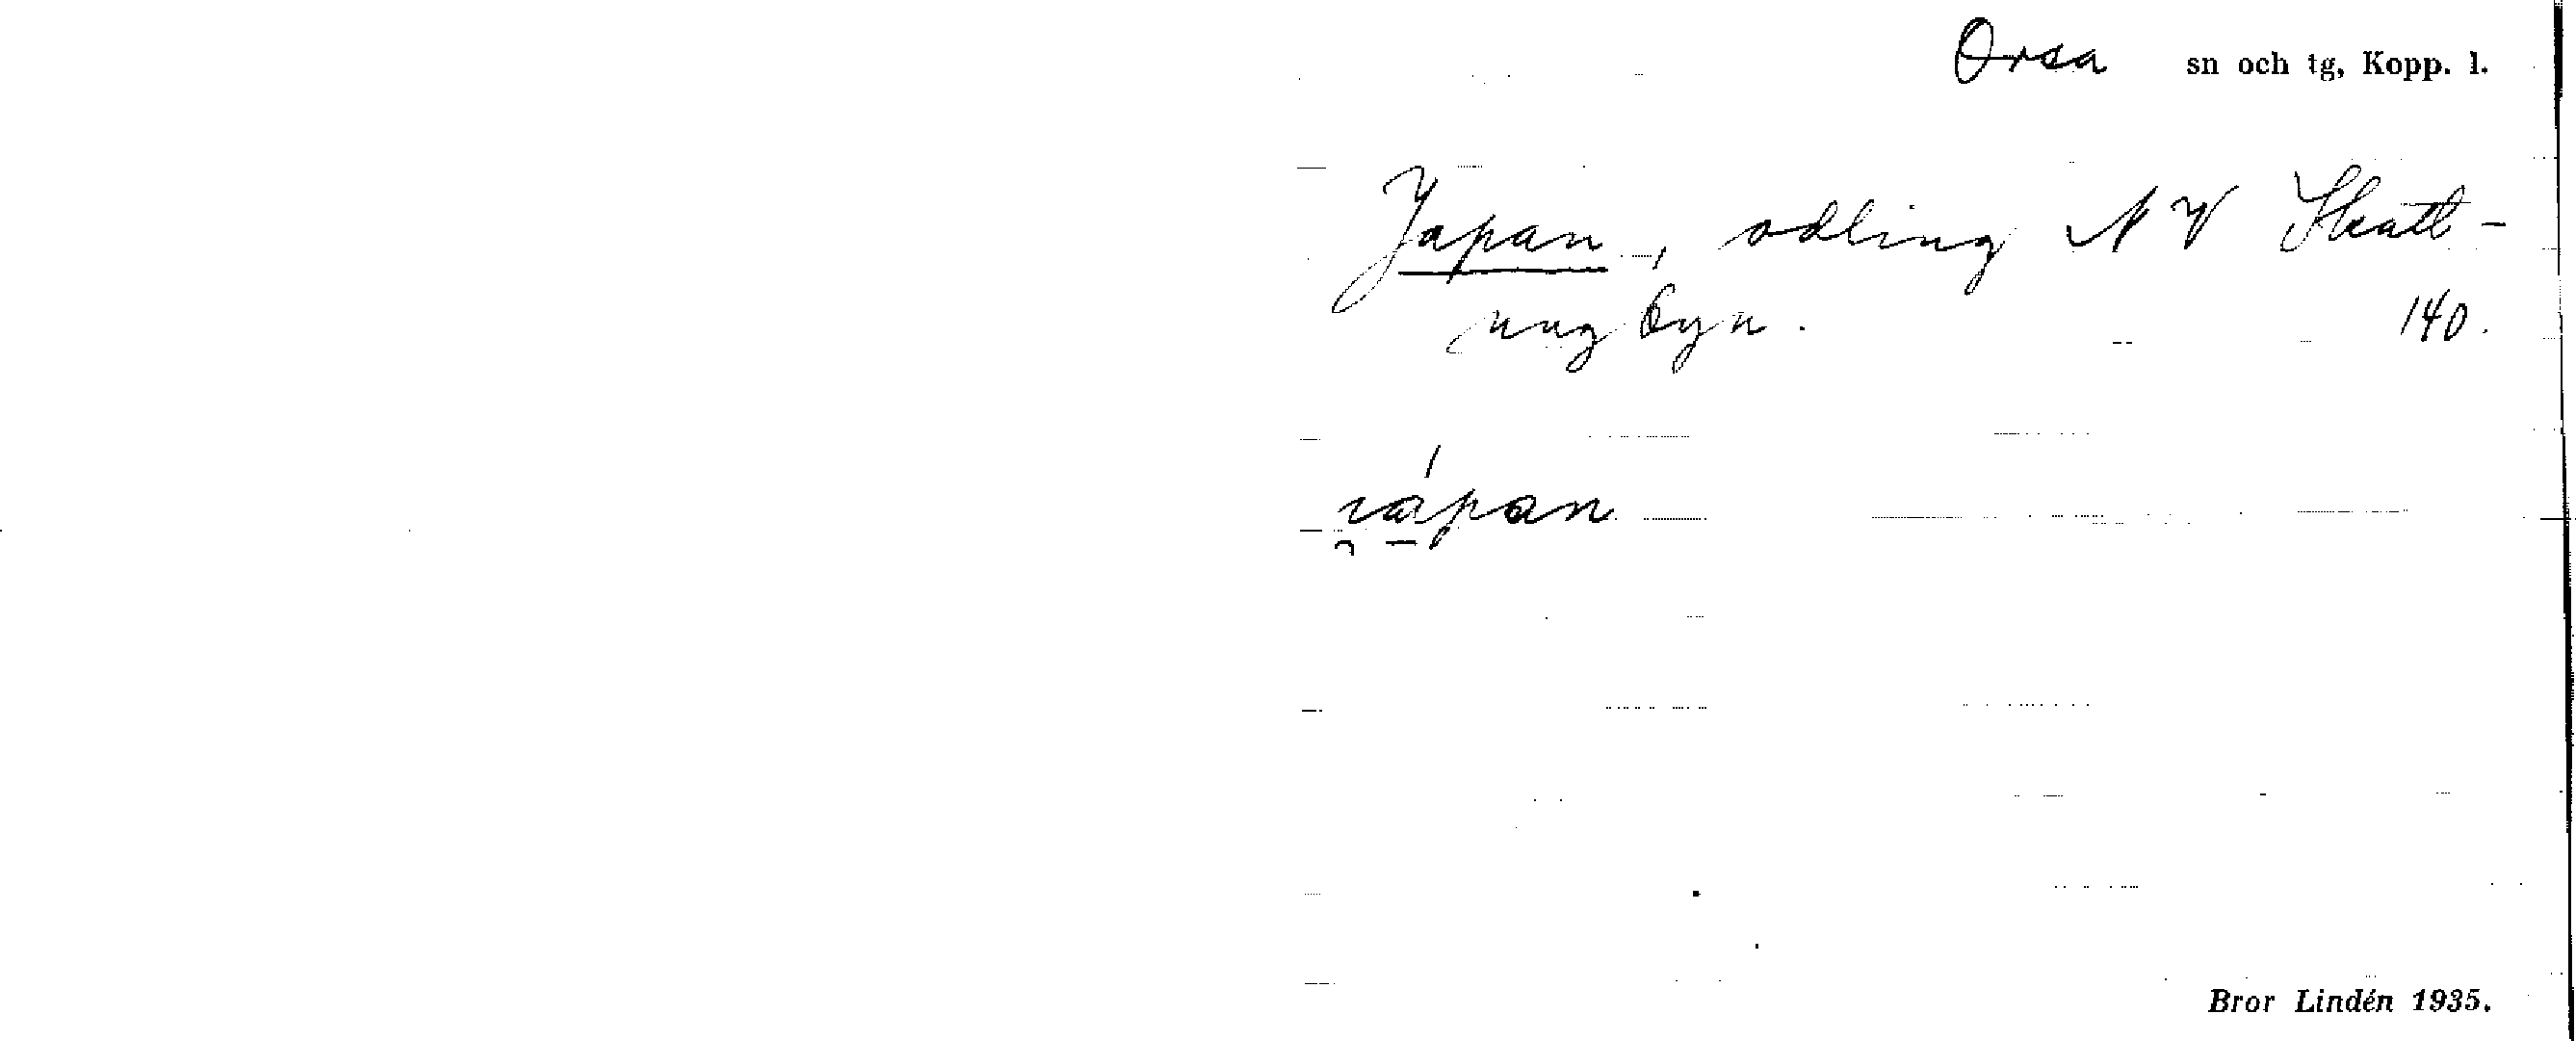 Orsa sn och tg, Kopp. l.
Japan, odling NV Skatt-
ungbyn. 140.
Bror Lindén 1935.